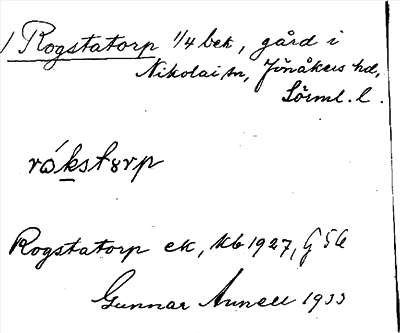 Rogstatorp 1/4 bek, gård i
Nikolai sn, Jönåkers hd,
Sörml. l.
rókstorp
Rogstatorp ek, Kb 1927, G 56
Gunnar Annell 1933